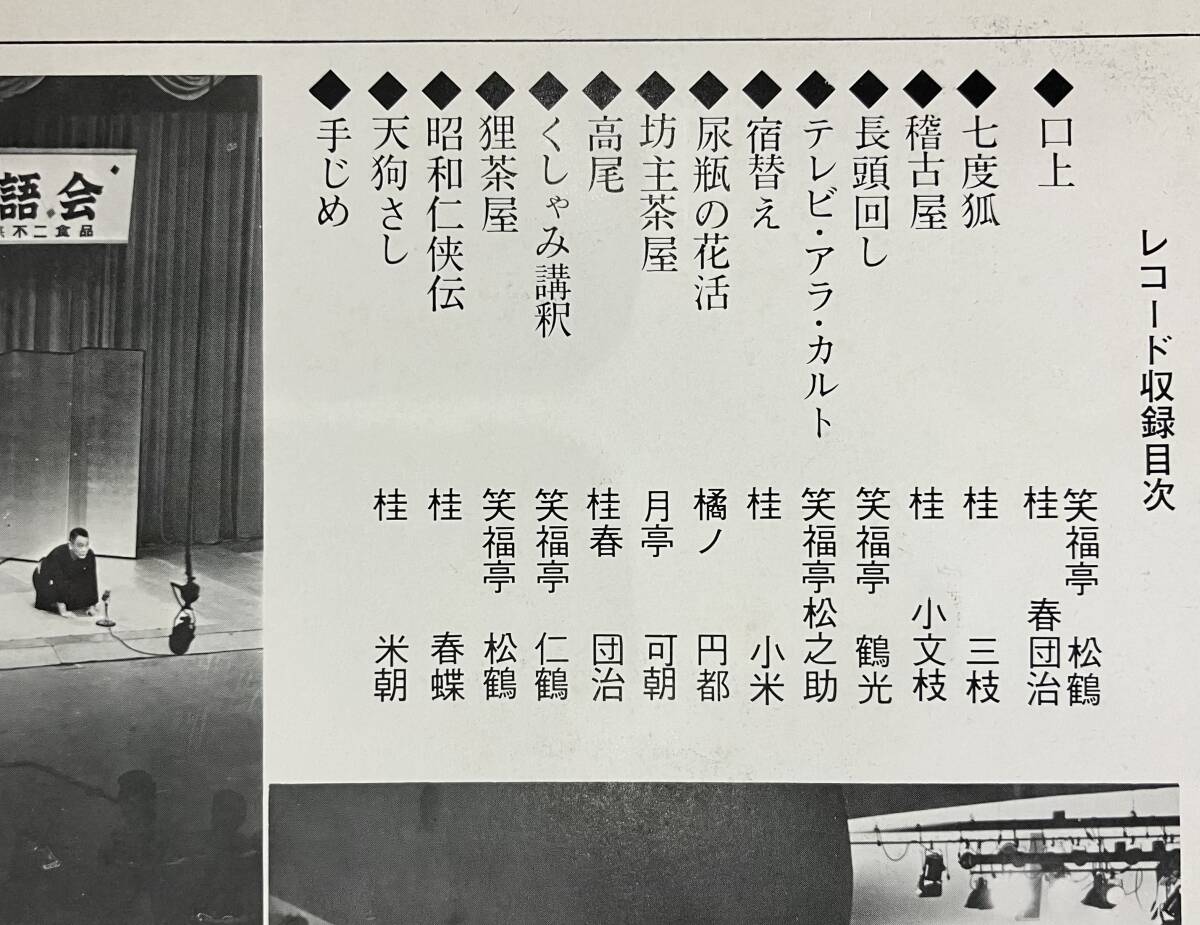 レコード収録目次
◆口上 笑福亭 松鶴
桂 春団治
◆七度狐 桂 三枝
◆稽古屋 桂 小文枝
◆長頭回し 笑福亭 鶴光
◆テレビ・アラ・カルト 笑福亭松之助
◆宿替え 桂 小米
◆尿瓶の花活 橘ノ 円都
◆坊主茶屋 月亭 可朝
◆高尾 桂春 団治
◆くしゃみ講釈 笑福亭 仁鶴
◆狸茶屋 笑福亭 松鶴
◆昭和仁侠伝 桂 春蝶
◆天狗さし 桂 米朝
◆手じめ
語会
不二食品